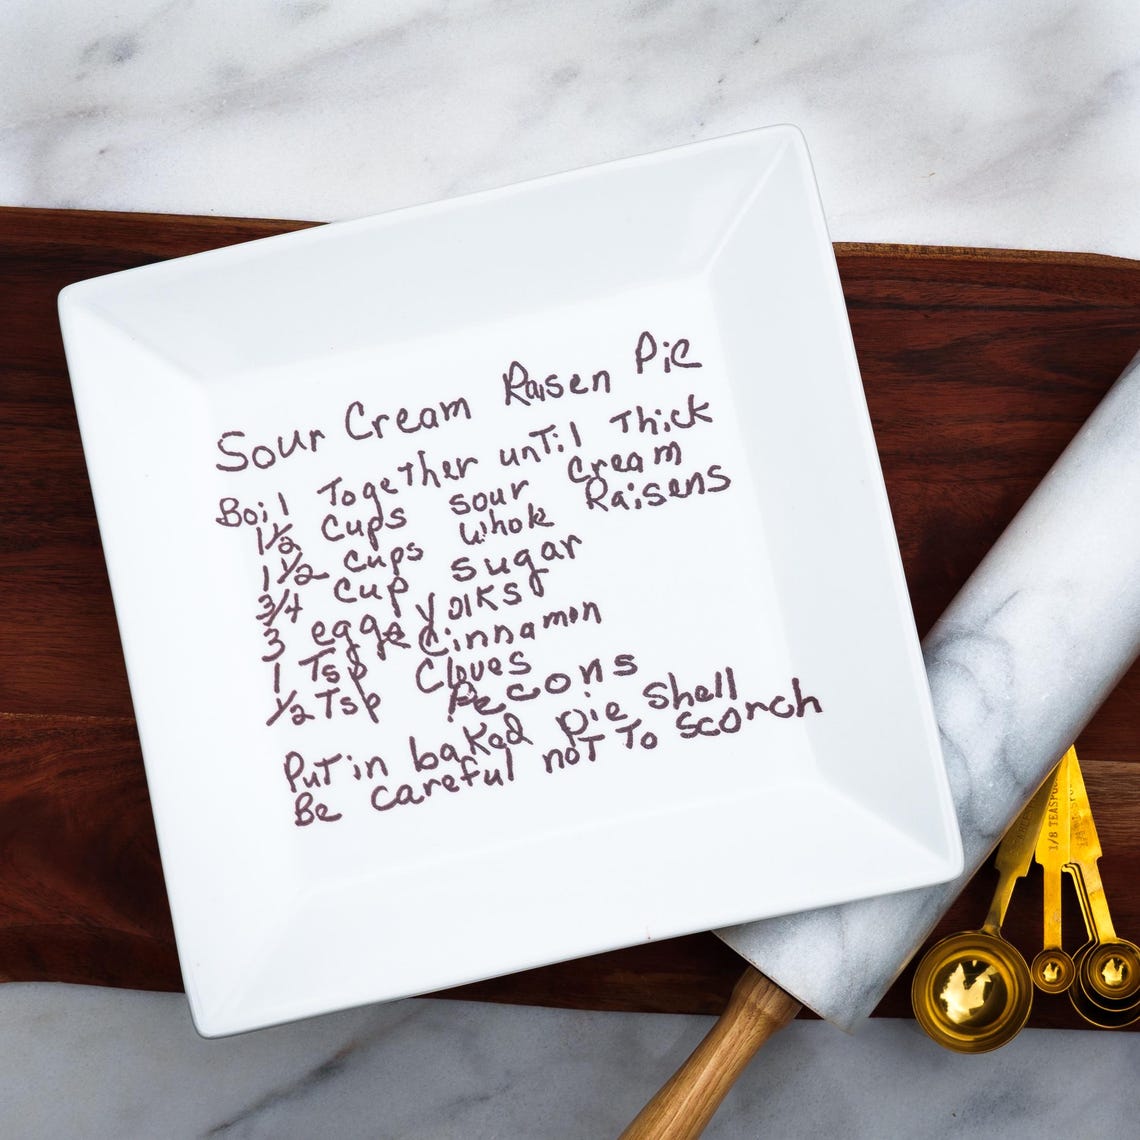 Sour Cream Raisen Pie
Boil Together until Thick
1 1/2 cups sour cream
1 1/2 cups whole Raisens
3/4 cup sugar
3 eggs yolks
1 Tsp Cinnamon
1/2 Tsp Cloves
Pecons
Put in baked pie shell
Be careful not To scorch
1/8 TEASPOON